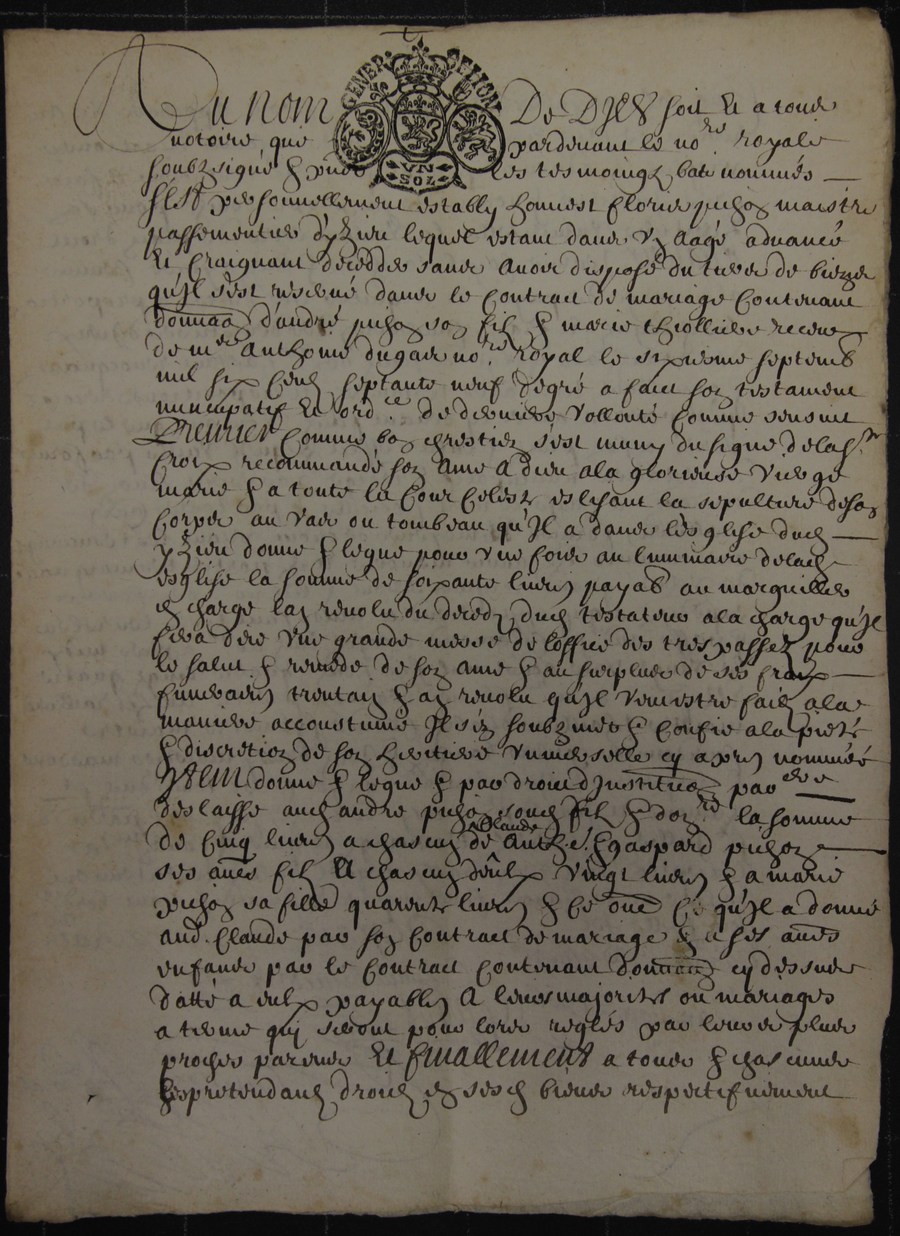 GENER LYON
VN SOL
Au nom De Dieu soit Et a tous
notoire que pardevant le no.re royal
soubzsigné & pnts les tesmoingz bas nommés
s'est personnellement estably honnest Floris pichon maistre
passementier d'yzieu lequel estant dans un aagé advancé
Et Craignant decedder sans avoir disposé du tiers de biens
qu'Il s'est reservé dans le Contract de mariage Contenant
donnaon d'andré pichon son fils & marie thiolliere receu
de me Anthoine dugas no.re royal le sixieme septemb
mil six Cens septante neuf degré a faict son testament
nuncupatif Et ord.ce de derniere vollonté Comme sensuit
Premier Comme bon chrestien s'est muny du signe de la s.te
Croix recommandé son Ame A dieu a la glorieuse vierge
marie & a toute la Cour Celeste eslisant la sepulture de son
Corps au vas ou tombeau qu'Il a dans l'esglise dud
yzieu donne & legue pour une fois au luminaire de lad
esglise la somme de soixante livres payab au marguillier
en charge lan revolu du deceds dud testateur a la charge qu'Il
fera dire une grande messe de loffice des trespassez pour
le salut & remede de son ame & au surplus de ses fraix
funeraires trentain & an revolu qu'Il veut estre faict a la
maniere accoustumé Il s'en soubzmet & Confie a la pieté
& discretion de son heritiere universelle cy apres nommée
Item donne & legue & par droict d'Institution par.ere
deslaisse aud andré pichon sond fils & don.re la somme
de Cinq livres a chascun de Claude Anth.e & gaspard pichon
ses aues fils A chascun d'eulx vingt livres & a marie
pichon sa fille quarente livres & Ce oue Ce qu'Il a donné
aud. Claude par son Contract de mariage & a ses aues
enfans par le Contract Contenant donnaon cy dessus
datté a eulx payables A leurs majorités ou mariages
a terme qui seront pour lors reglés par leurs plus
proches parens Et finallement a tous & chascuns
ses pretendans droict en sesd biens respectifvement